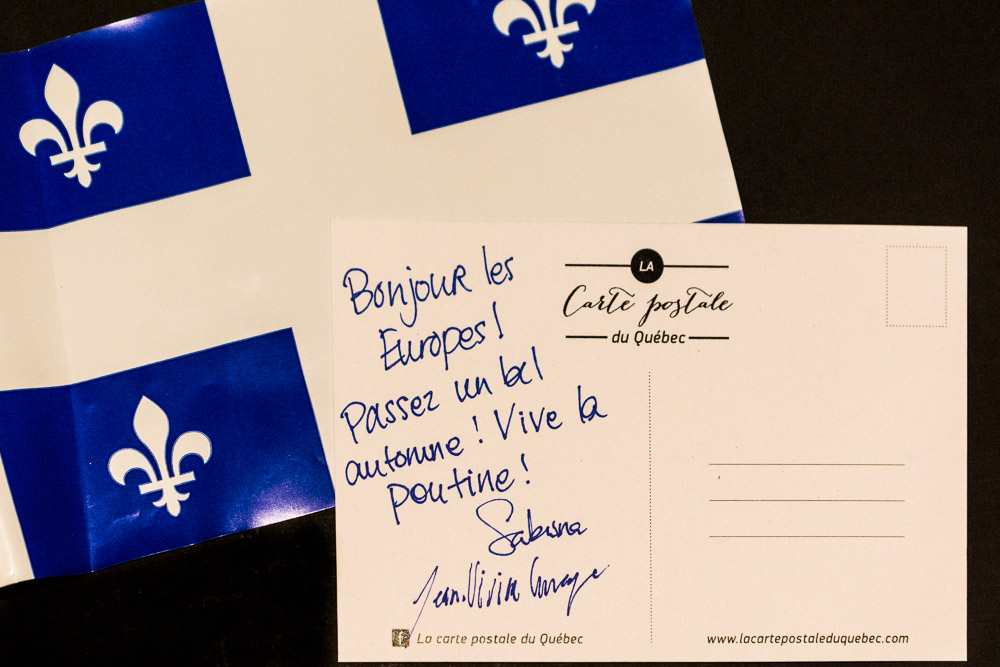 Bonjour les
Europes!
Passez un bel
automne! Vive la
poutine!
Sabrina
LA
Carte postale
du Québec
La carte postale du Québec
www.lacartepostaleduquebec.com